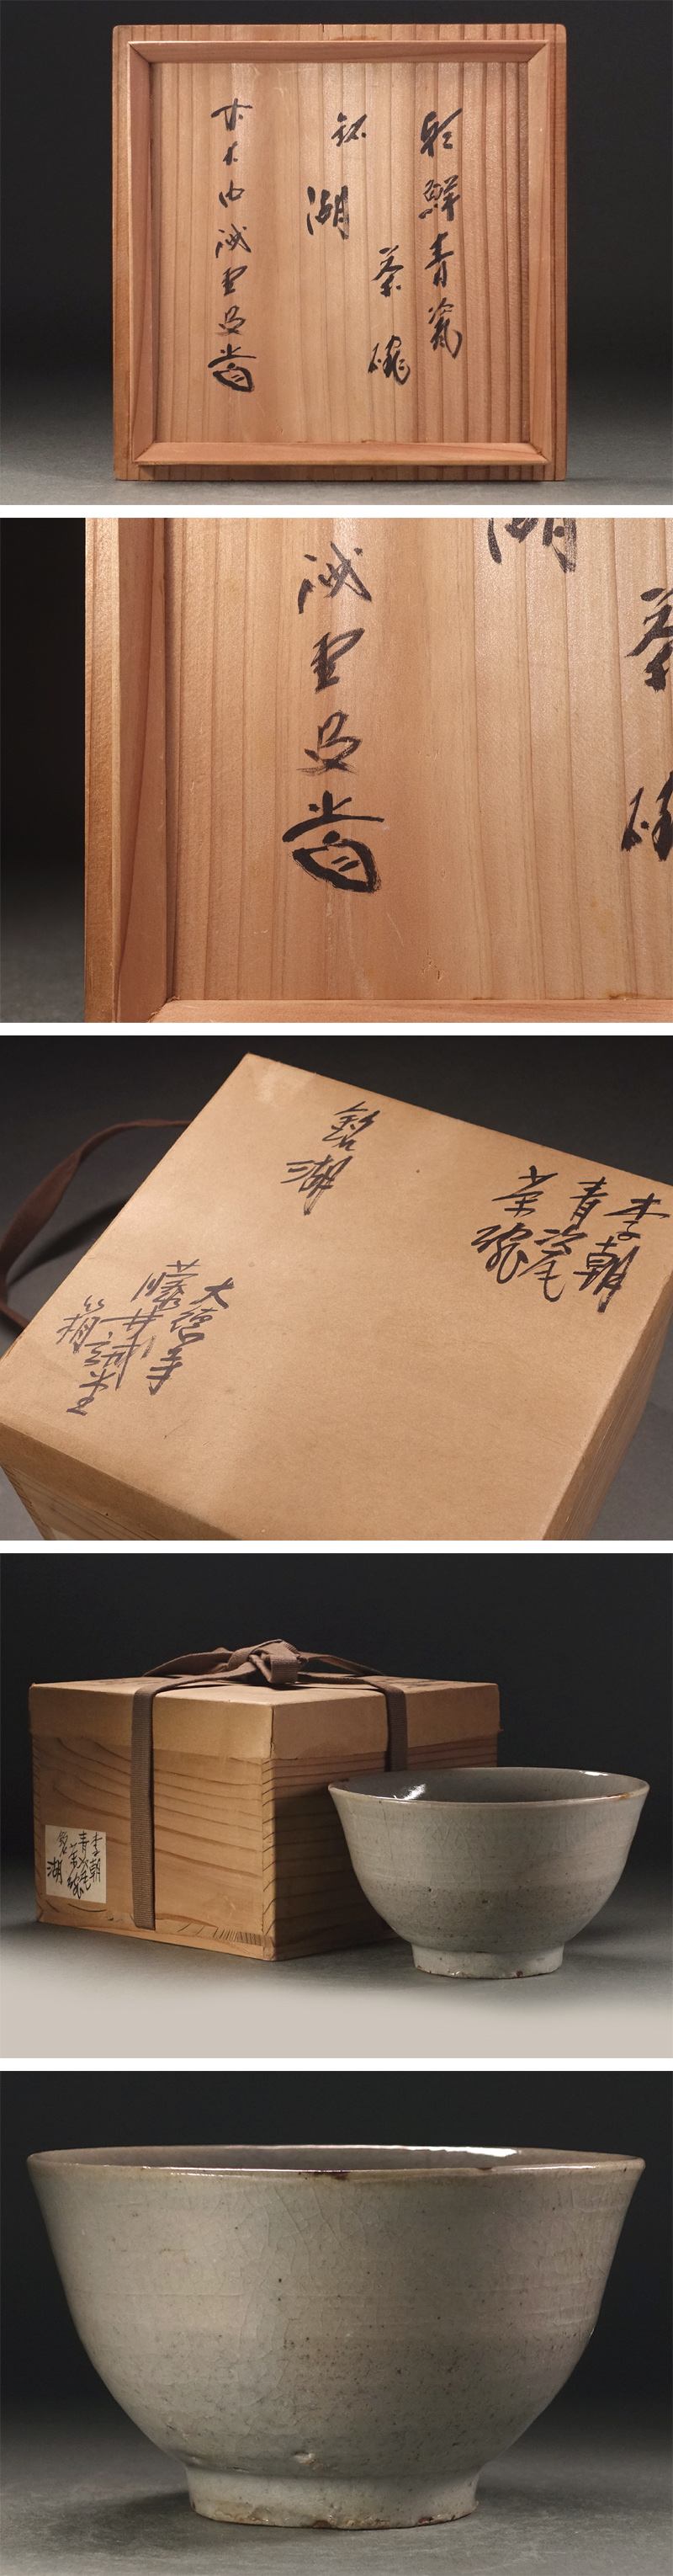 朝鮮青瓷
茶碗
銘
湖
誡堂
誡堂
湖
茶
碗
李朝
青瓷
茶碗
銘湖
大徳寺
藤井誡堂
箱
李朝
青瓷
茶碗
銘湖